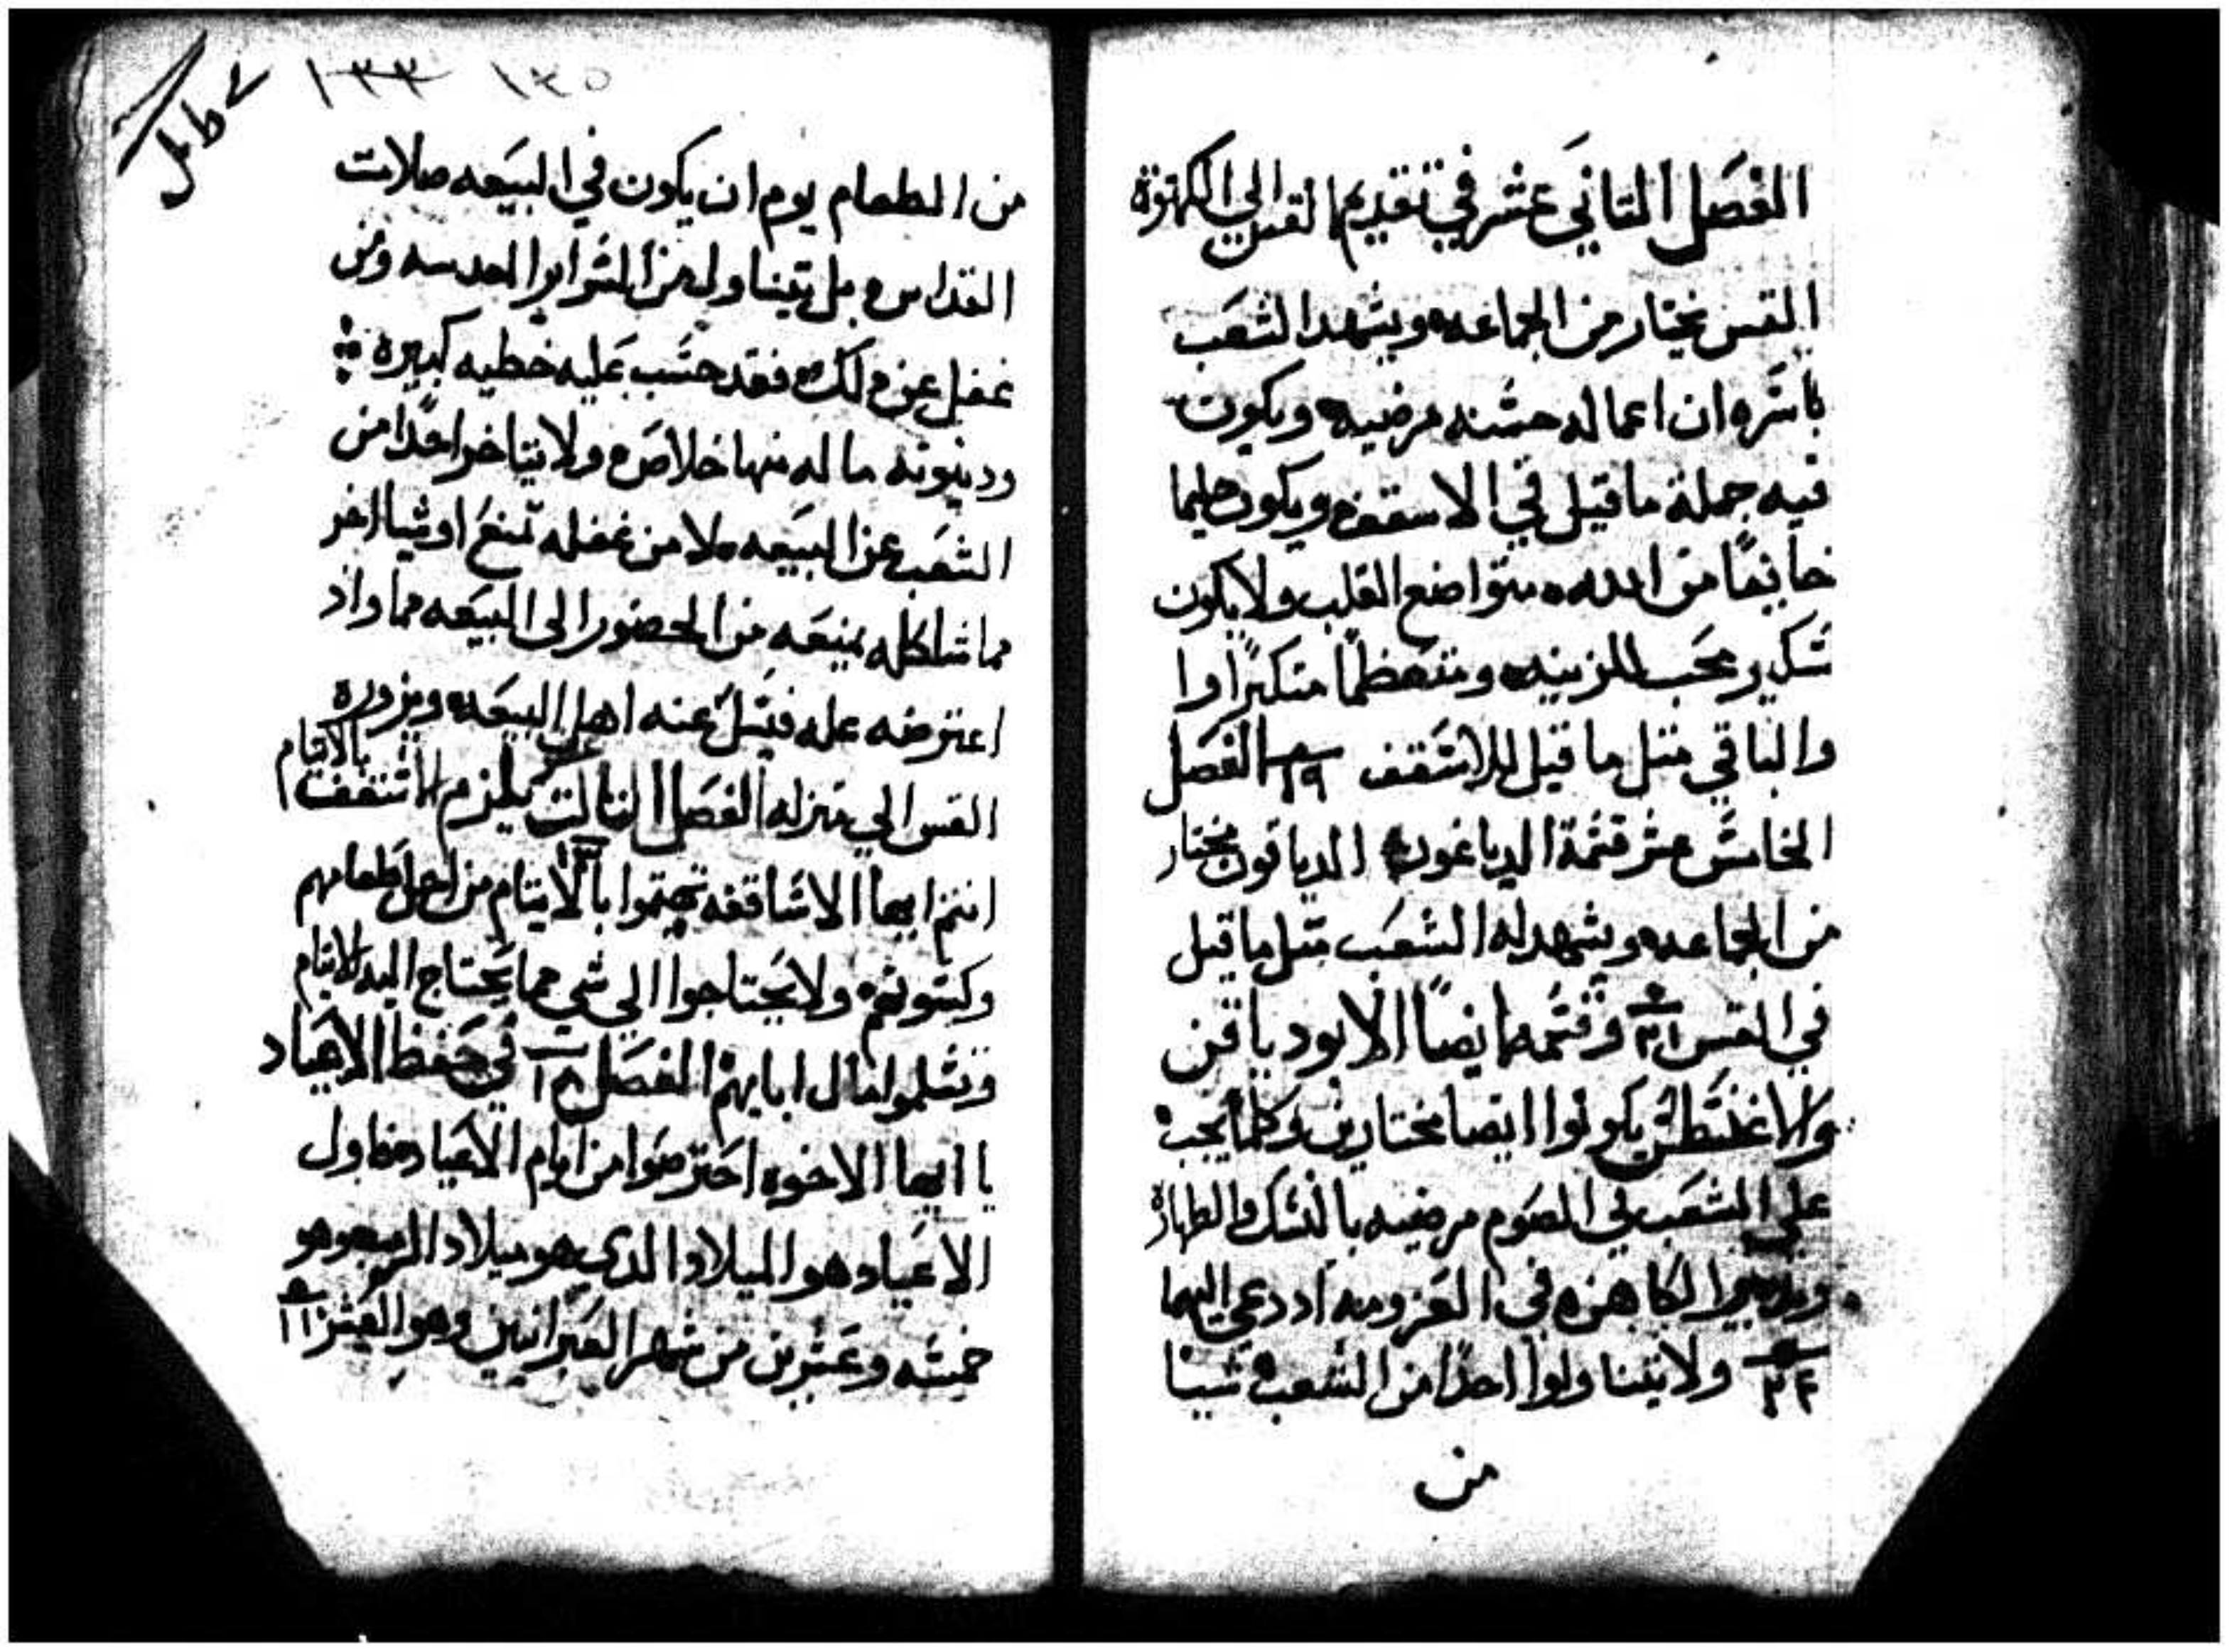 الفصل التاني عشر في تقديم القس الي الكهنوة
القس يختار من الجماعه ويشهد الشعب
باسره ان اعماله حسنه مرضيه ويكون
فيه جملة ما قيل في الاسقف ويكون حليما
خايفا من الله متواضع القلب ولا يكون
سكير محب للزينه ومتعظما متكبرا وا
والباقي متل ما قيل للاسقف ١٩ الفصل
الخامس عشر قسمة الدياغون الدياقون يختار
من الجماعه ويشهد له الشعب متل ما قيل
في القس ٢١ وقسمه ايضا الابودياقن
والاغنسطس يكونوا ايضا مختارين وكلما يجب
علي الشعب في الصوم مرضيه بالنسك والطهارة
الكاهن في العزومه اد دعي اليها
٢٤ ولا يتناولوا احدا من الشعب شيا
من
١٣٣ ١٣٥
من الطعام يوم ان يكون في البيعه صلات
القداس بل يتناول من السراير المقدسه ومن
غفل عن دلك فقد حسب عليه خطيه كبيره
ودينونه ما له منها خلاص ولا يتاخر احدا من
الشعب عن البيعه الا من غفله تمنع او شيا اخر
مما شاكله يمنعه من الحضور الى البيعه مما واد
اعترضه عله فيسل عنه اهل البيعه ويزوره
القس الي منزله الفصل التالت عشر يلزم الاسقف بالايتام
انتم ايها الاساقفه تهتموا بالايتام من اجل طعامهم
وكسوتهم ولا يحتاجوا الي شي مما يحتاج اليه الايتام
وتسلموا مال ابايهم الفصل ١٨ في حفظ الاعياد
يا ايها الاخوه احترصوا من ايام الاعياد اول
الاعياد هو الميلاد الدي هو ميلاد الرب وهو
خمسه وعشرين من شهر العبرانيين وهو